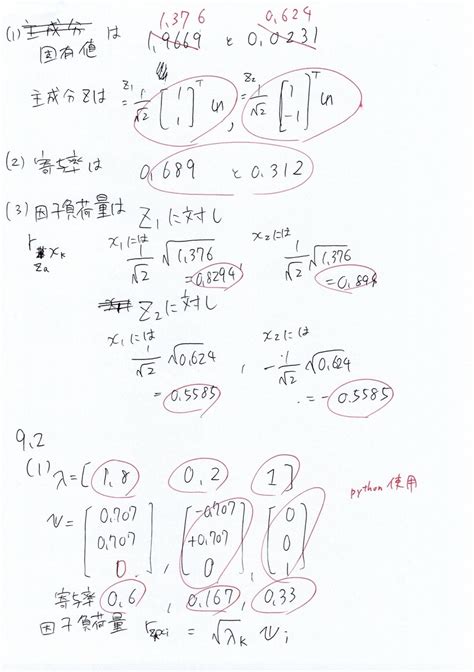 1,376 0,624
(1) 主成分 固有値 は 1,9669 と 0,0231
主成分Zは Z₁ = 1/√2 [1 1]ᵀ u , Z₂ = 1/√2 [1 -1]ᵀ u
(2) 寄与率は 0,689 と 0.312
(3) 因子負荷量は Z₁に対し
x₁には 1/√2 √1,376 = 0.8294
x₂には 1/√2 √1,376
Z₂に対し
x₁には 1/√2 √0,624 = 0.5585 ,
x₂には -1/√2 √0,624 = -0.5585
9,2
(1) λ=[1,8 0,2 1]
python 使用
[0.707 0.707 0.] , [-0.707 +0.707 0] , [0 0 1]
寄与率 0,6 , 0,167 , 0,33
因子負荷量 = √λₖ